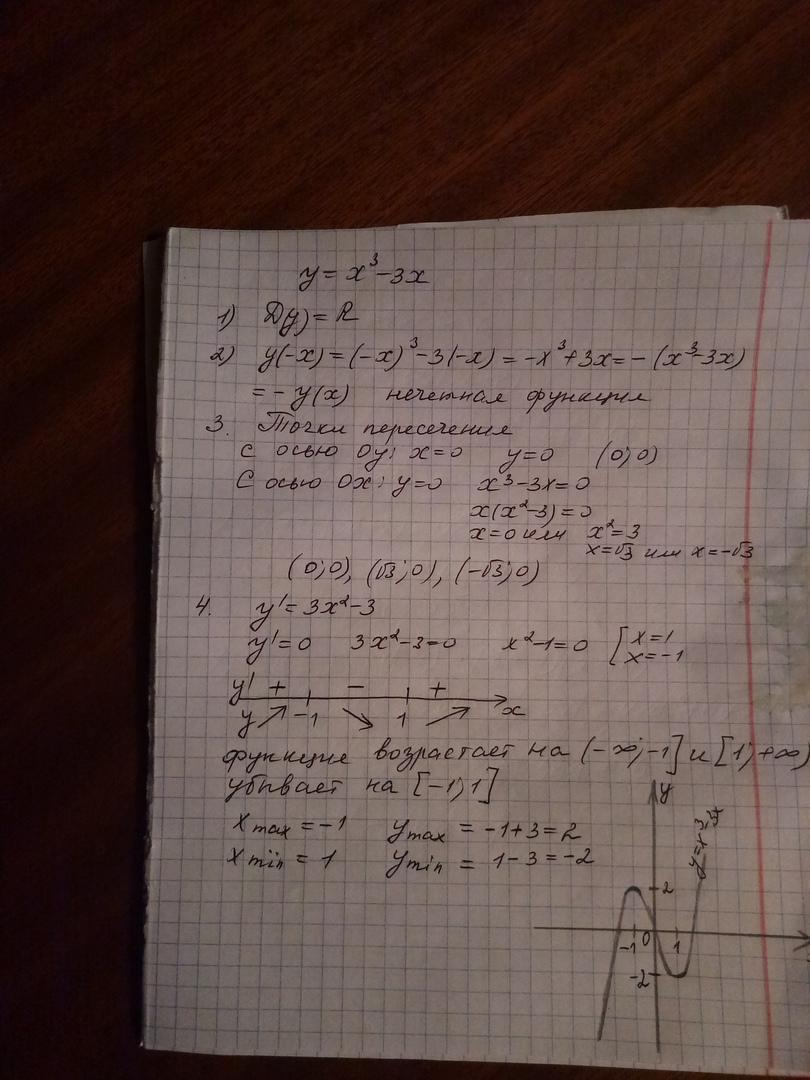 y = x³-3x
1) D(y) = R
2) y(-x) = (-x)³-3(-x) = -x³+3x = -(x³-3x)
= -y(x) нечетная функция
3. Точки пересечения
С осью Oy: x=0 y=0 (0;0)
С осью Ox: y=0 x³-3x=0
x(x²-3)=0
x=0 или x²=3
x=√3 или x=-√3
(0;0), (√3;0), (-√3;0)
4. y'=3x²-3
y'=0 3x²-3=0 x²-1=0 [x=1
x=-1
y' + - +
y -1 1 x
функция возрастает на (-∞;-1] и [1;+∞)
убывает на [-1;1]
xmax = -1 ymax = -1+3=2
xmin = 1 ymin = 1-3=-2
y
2
-1 0 1
-2